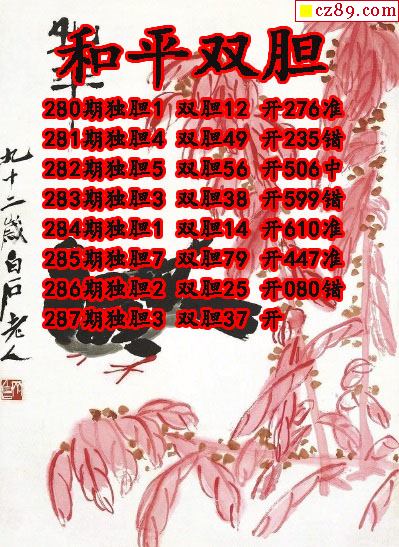 cz89.com
和平双胆
280期独胆1 双胆12 开276准
281期独胆4 双胆49 开235错
282期独胆5 双胆56 开506中
283期独胆3 双胆38 开599错
284期独胆1 双胆14 开610准
285期独胆7 双胆79 开447准
286期独胆2 双胆25 开080错
287期独胆3 双胆37 开
九十二岁白石老人